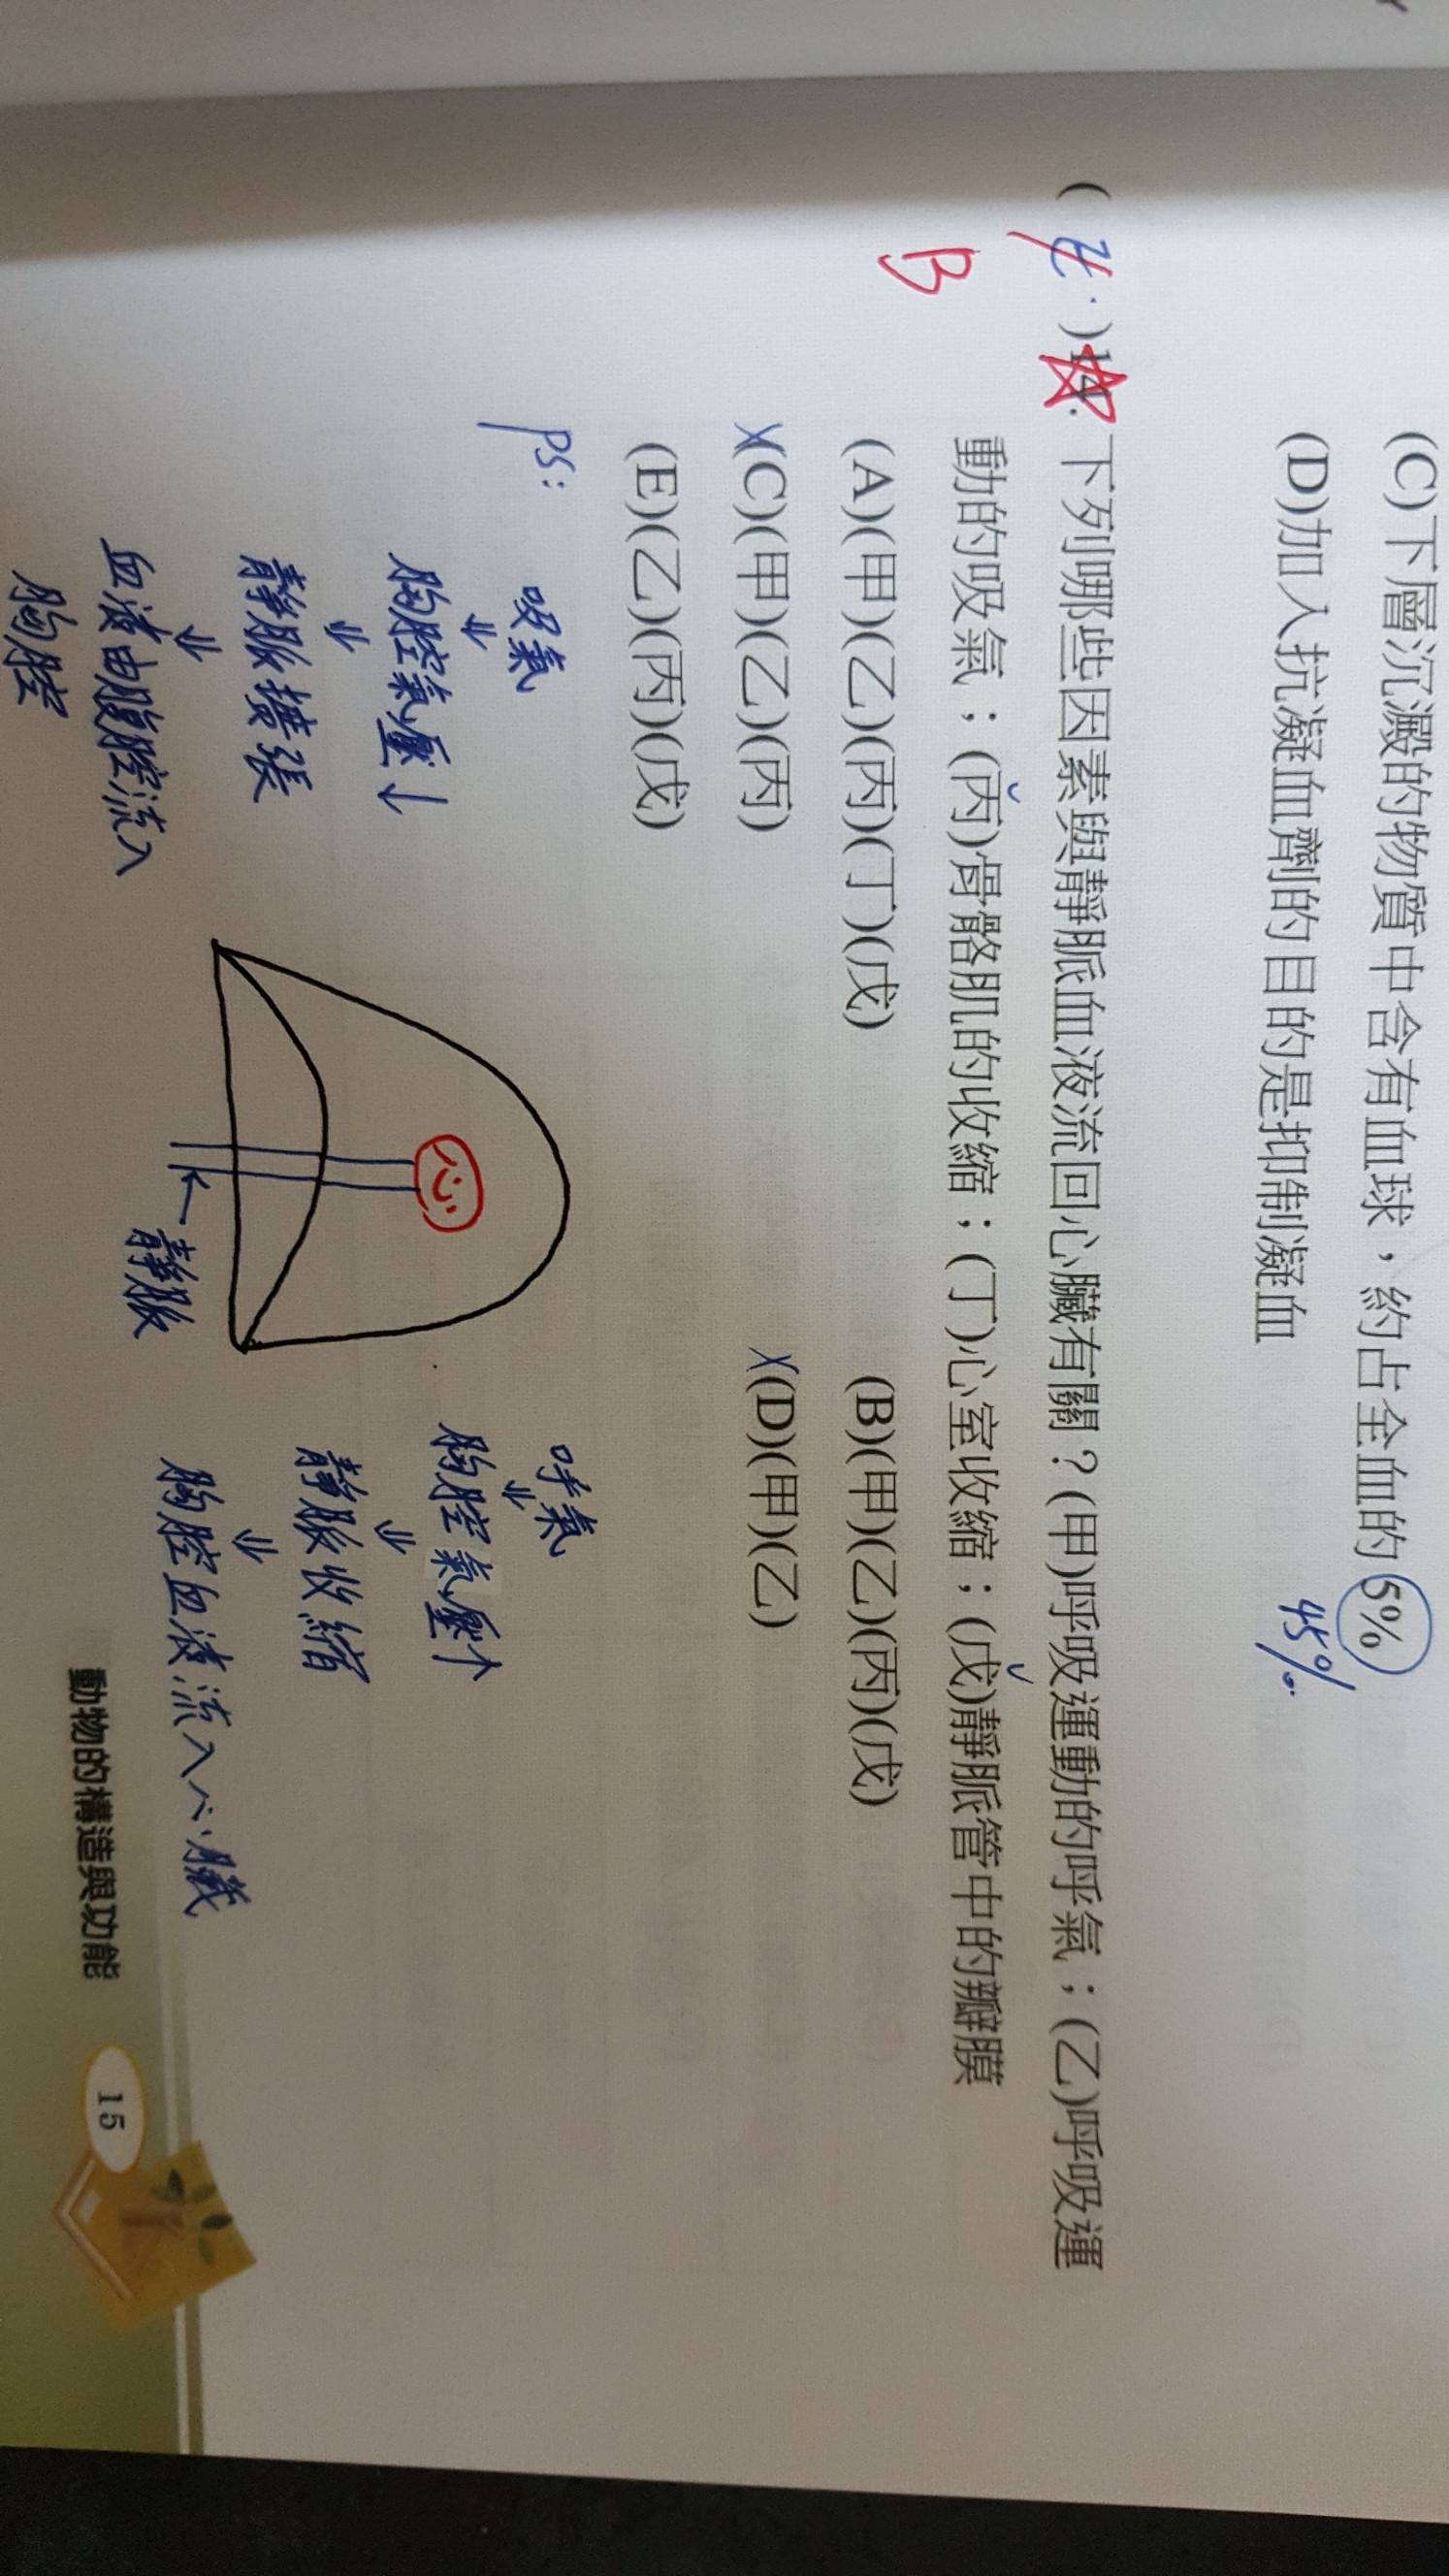 (C)下層沉澱的物質中含有血球，約占全血的5%
45%
(D)加入抗凝血劑的目的是抑制凝血
( E )14.下列哪些因素與靜脈血液流回心臟有關？(甲)呼吸運動的呼氣；(乙)呼吸運
B
動的吸氣；(丙)骨骼肌的收縮；(丁)心室收縮；(戊)靜脈管中的瓣膜
(A)(甲)(乙)(丙)(丁)(戊) (B)(甲)(乙)(丙)(戊)
X(C)(甲)(乙)(丙) X(D)(甲)(乙)
(E)(乙)(丙)(戊)
PS:
吸氣
⇓
胸腔氣壓↓
⇓
靜脈擴張
⇓
血液由腹腔流入
胸腔
心
靜脈
呼氣
⇓
胸腔氣壓↑
⇓
靜脈收縮
⇓
胸腔血液流入心臟
動物的構造與功能 15